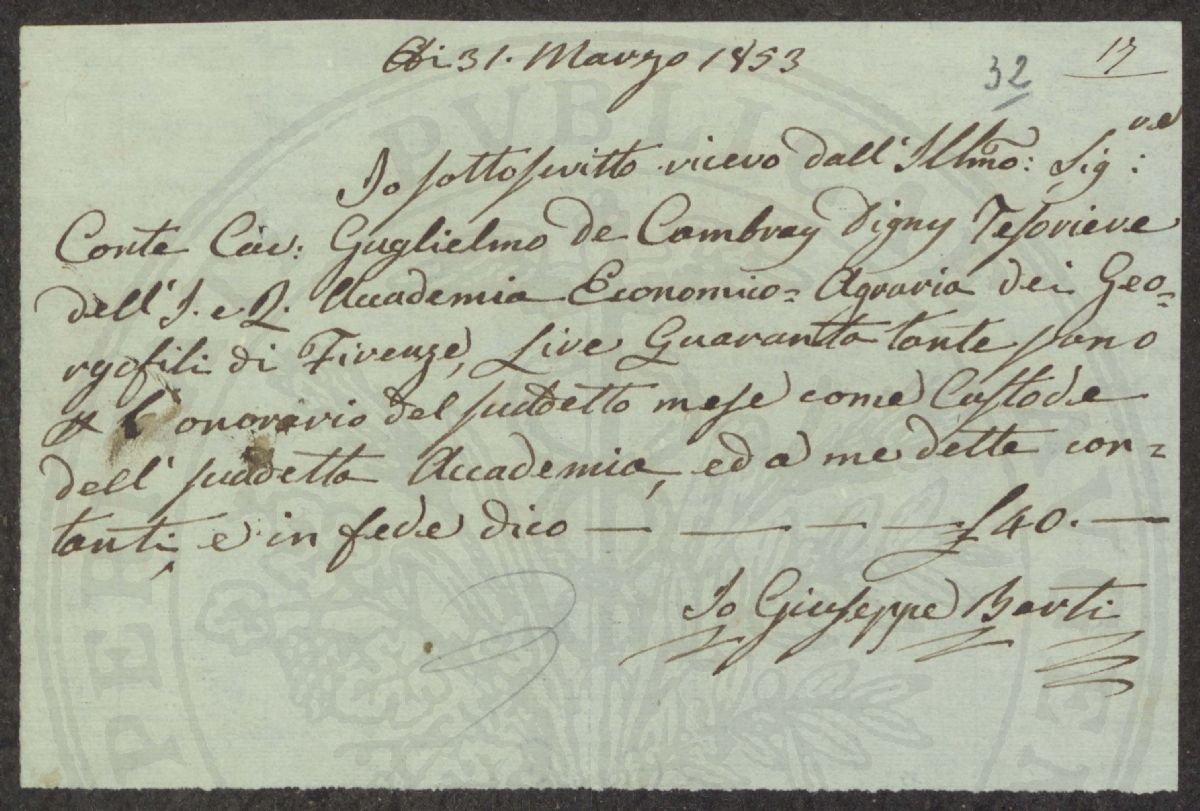 Adi 31. Marzo 1853
32
17
Io sottoscritto ricevo dall' Illmo: Sig:re
Conte Cav: Guglielmo de Cambray Digny Tesoriere
dell' I. e R. Accademia Economico=Agraria dei Geo=
rgofili di Firenze, Lire Quaranta tante sono
p l'onorario del suddetto mese come Custode
dell' suddetta Accademia, ed a me dette con=
tanti, e in fede dico — — — — £ 40. —
Io Giuseppe Berti
PUBLICAE